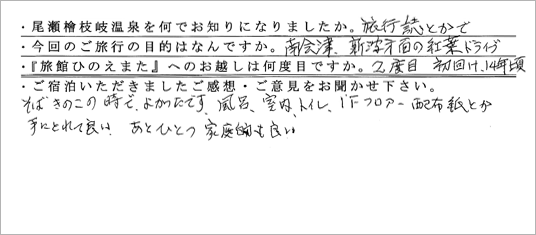 ・尾瀬檜枝岐温泉を何でお知りになりましたか。旅行誌とかで
・今回のご旅行の目的はなんですか。南会津、新潟方面の紅葉ドライブ
・『旅館ひのえまた』へのお越しは何度目ですか。2度目 初回は、14年頃
・ご宿泊いただきましたご感想・ご意見をお聞かせ下さい。
そばきのこの時で、よかったです、風呂、室内、トイレ、1Fフロアー 配布紙とか
手にとれて良い、あとひとつ 家庭的も良い